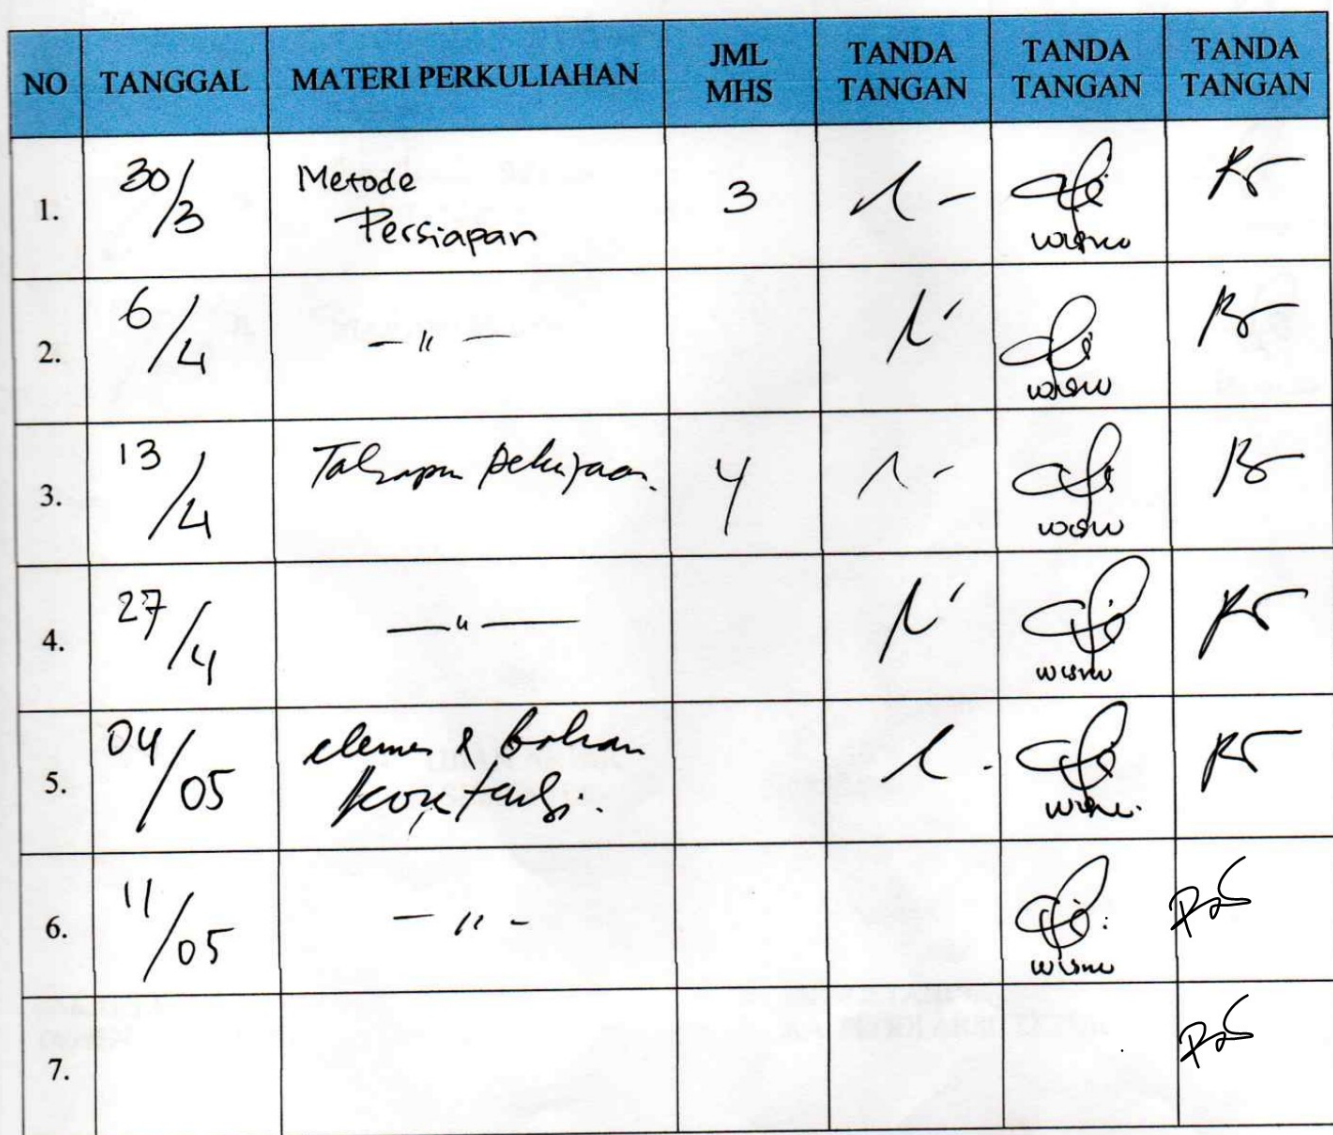 NO TANGGAL MATERI PERKULIAHAN JML MHS TANDA TANGAN TANDA TANGAN TANDA TANGAN
1. 30/3 Metode Persiapan 3 wisnu
2. 6/4 — " — wisnu
3. 13/4 Tahapan pekerjaan. 4 wisnu
4. 27/4 — " — wisnu
5. 04/05 elemen & bahan wisnu
6. 11/05 — " — wisnu
7.